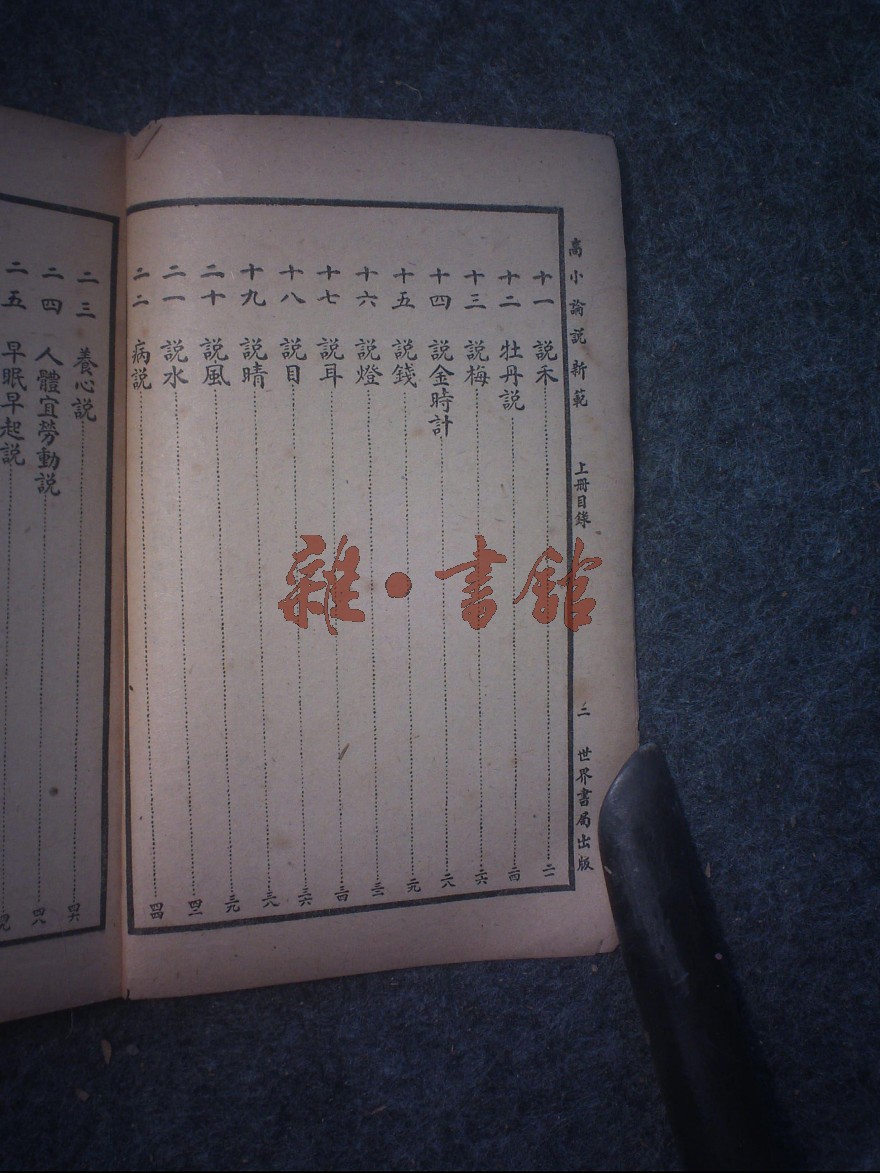 高小論説新範 上冊目錄 二 世界書局出版
十一 説禾 二一
十二 牡丹説 二四
十三 説梅 二六
十四 説金時計 二八
十五 説錢 二九
十六 説燈 三二
十七 説耳 三四
十八 説目 三六
十九 説晴 三八
二十 説風 三九
二一 説水 四二
二二 病説 四四
二三 養心説 四六
二四 人體宜勞動説 四八
二五 早眠早起説
雜·書館